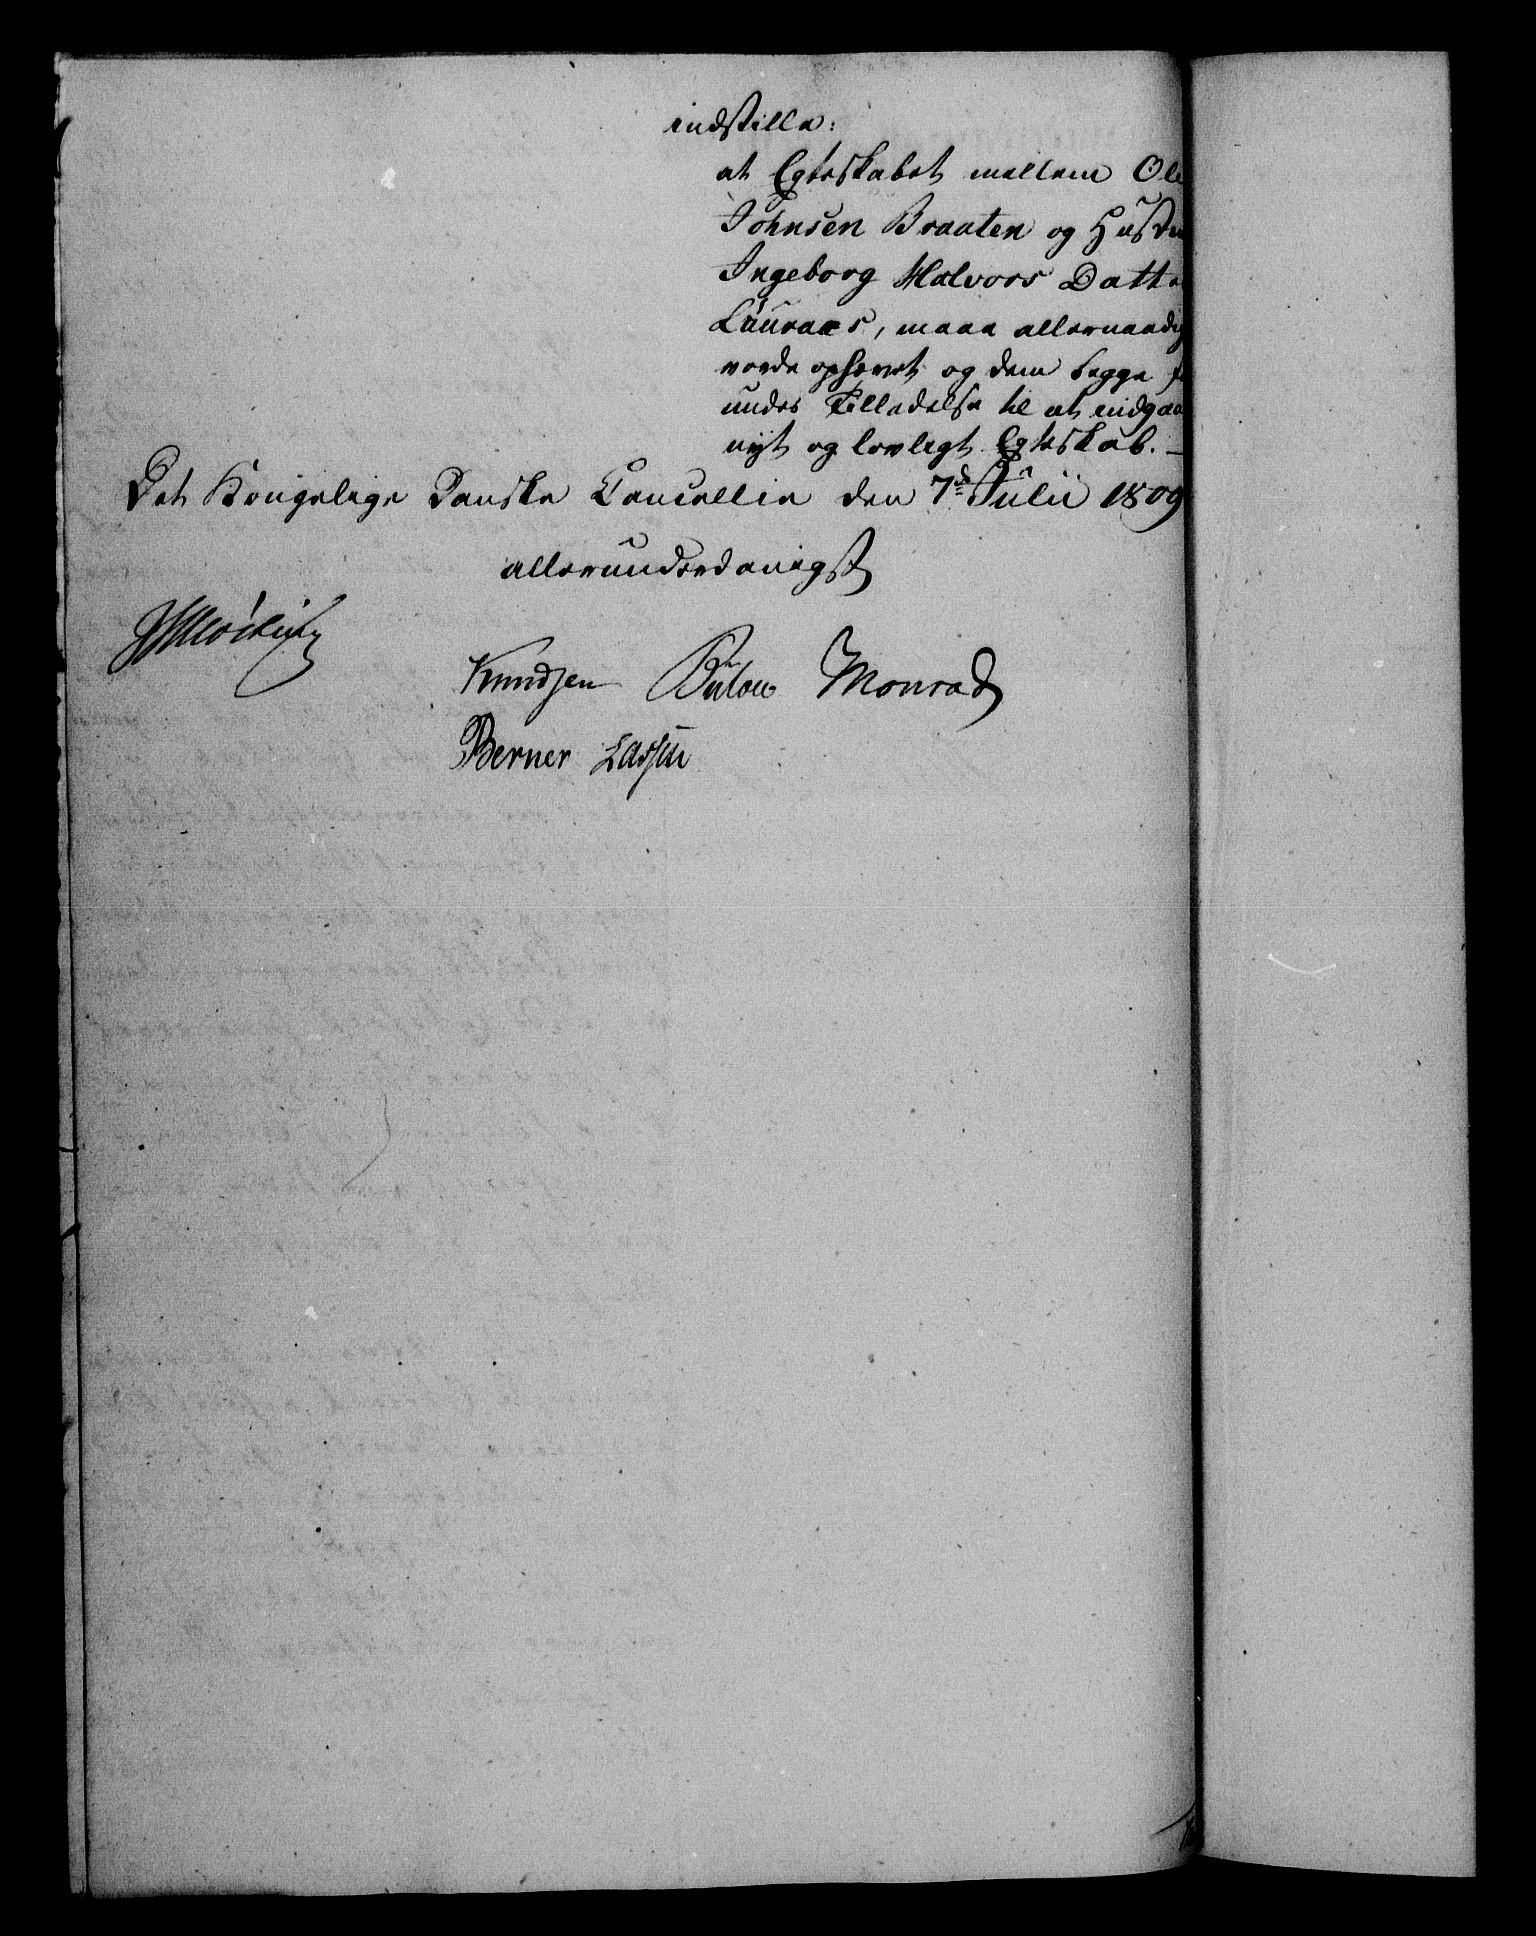 indstille:
at Egteskabet mellem Ole
Johnsen Braaten og Hustru
Ingeborg Halvors Datter
maae allernaadigst
vorde ophævet og dem begge
undes Tilladelse til at indgaae
nyt og lovligt Egteskab. –
Det Kongelige Danske Cancellie den 7de Julii 1809
allerunderdanigst
Knudsen Bülow Monrad
Berner Lassen